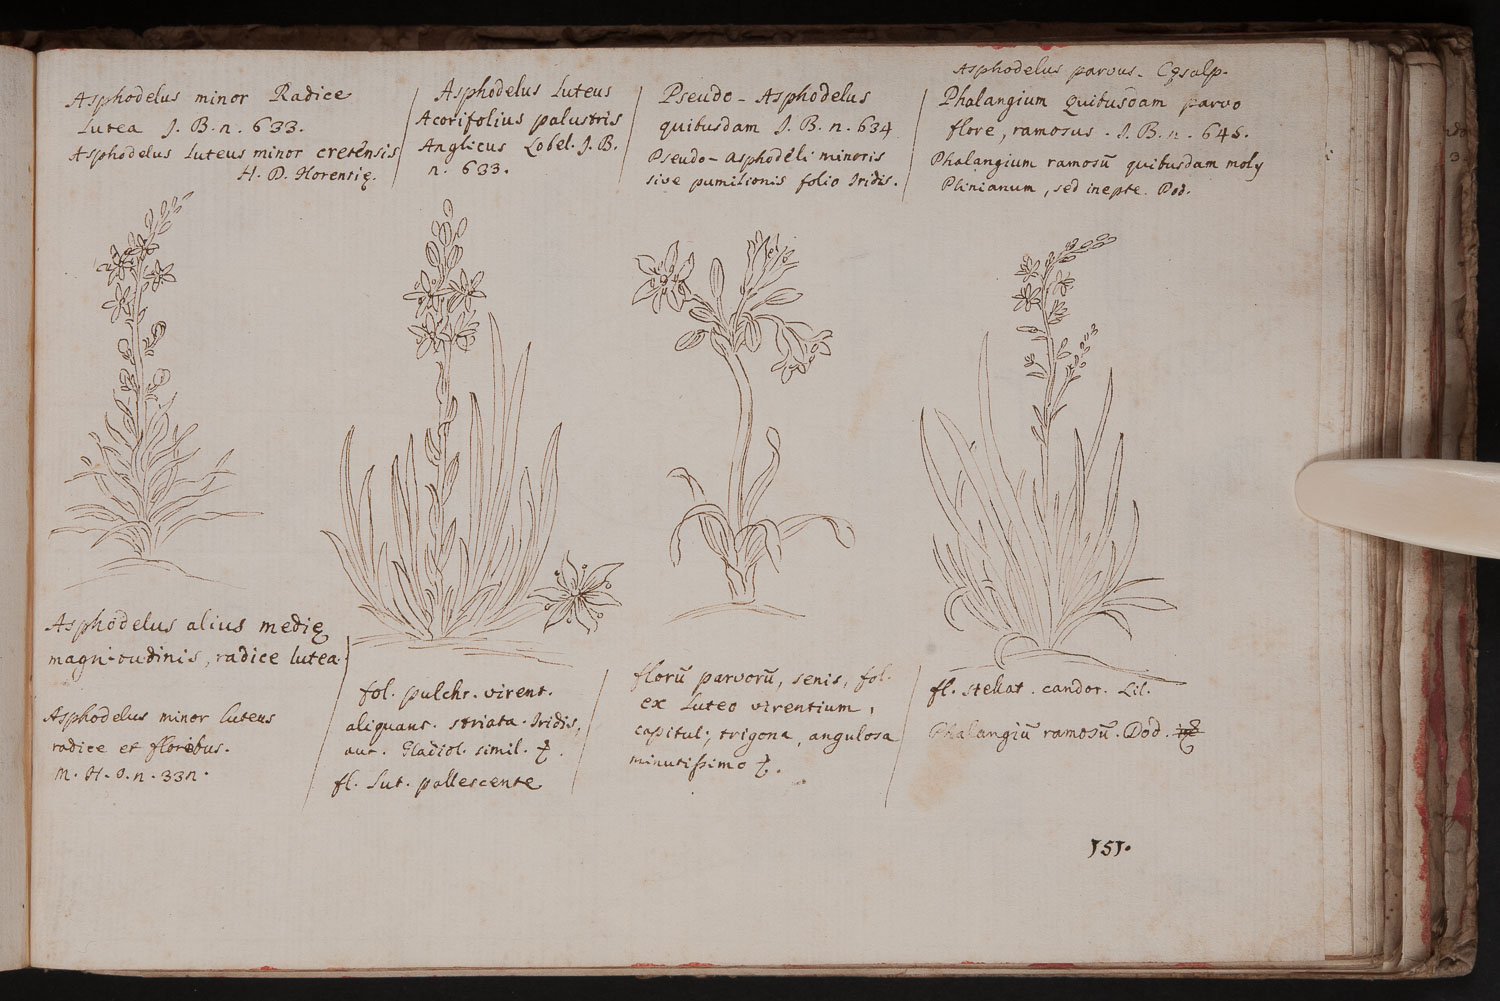 Asphodelus minor Radice
Lutea J. B. n. 633.
Asphodelus luteus minor cretensis
H. D. Horensię.
Asphodelus Luteus
Acorifolius palustris
Anglicus Lobel. J. B.
n. 633.
Pseudo - Asphodelus
quibusdam J. B. n. 634
Pseudo - asphodéli minoris
sive pumilionis folio Iridis.
Asphodelus parvus. Cęsalp.
Phalangium Quibusdam parvo
flore, ramosus. J. B. n. 645.
Phalangium ramosū quibusdam moly
Plinianum, sed inepte. Dod.
Asphodelus alius medię
magnitudinis, radice lutea.
Asphodelus minor luteus
radice et floribus.
M. H. J. n. 33n.
fol. pulchr. virent.
aliquant. striata. Iridis,
aut. Gladiol. simil.
fl. Lut. pallescente
florū parvorū, senis, fol.
ex Luteo virentium,
capitul; trigona, angulosa
minutissimo
fl. stellat. candor. Lil.
Phalangiū ramosū. Dod.
151.